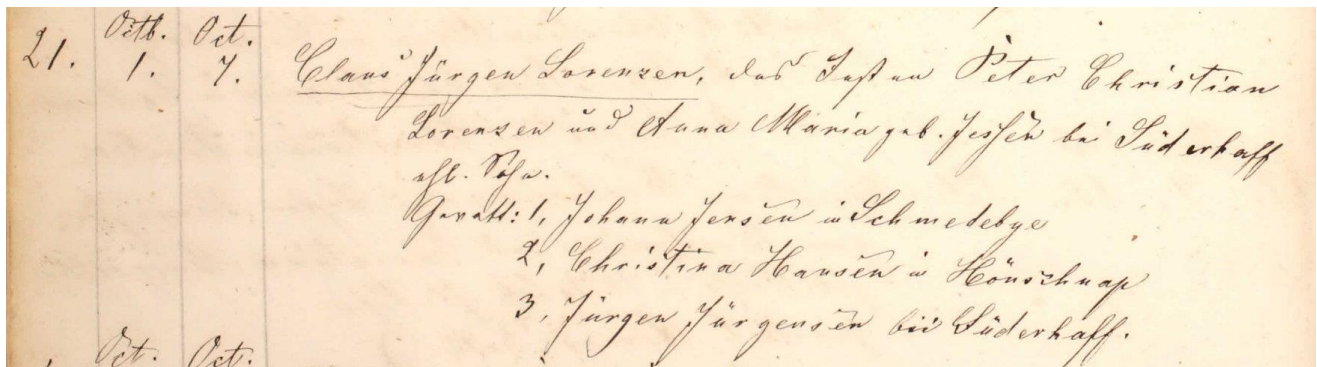 21. Octb. 1. Oct. 7. Claus Jürgen Lorenzen, des Insten Peter Christian
Lorenzen und Anna Maria geb. Jessen bei Süderhaff
ehl. Sohn.
Gevatt: 1, Johann Jensen in Schmedebye
2, Christina Hansen in Hönschnap
3, Jürgen Jürgensen bei Süderhaff.
Oct. Oct.